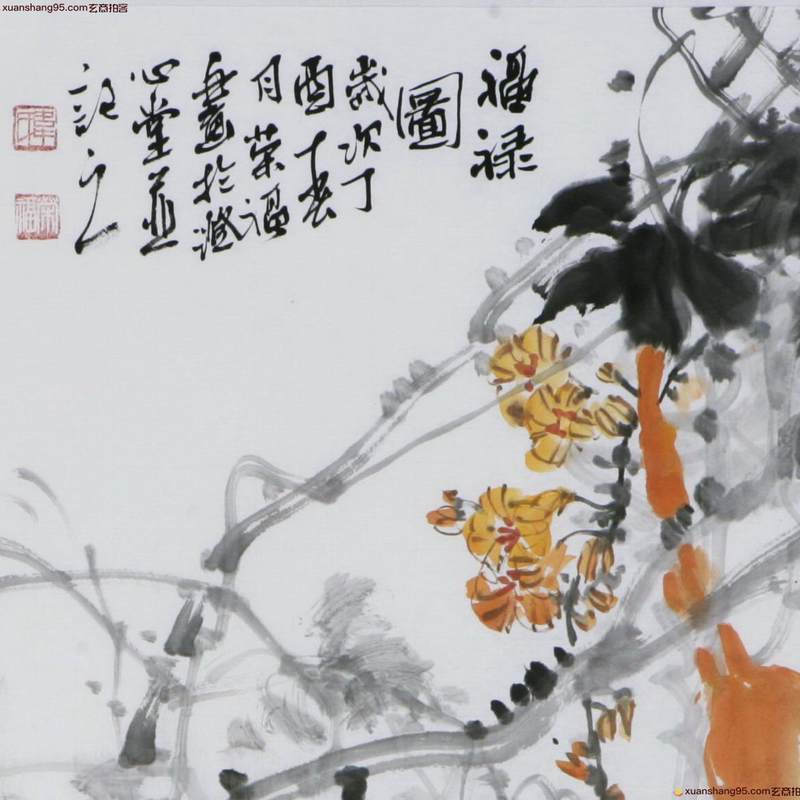 xuanshang95.com玄商拍客
福禄
圖
歲次丁
酉十
月荣福
畫於澄
心堂並
記之
荣福
xuanshang95.com玄商拍